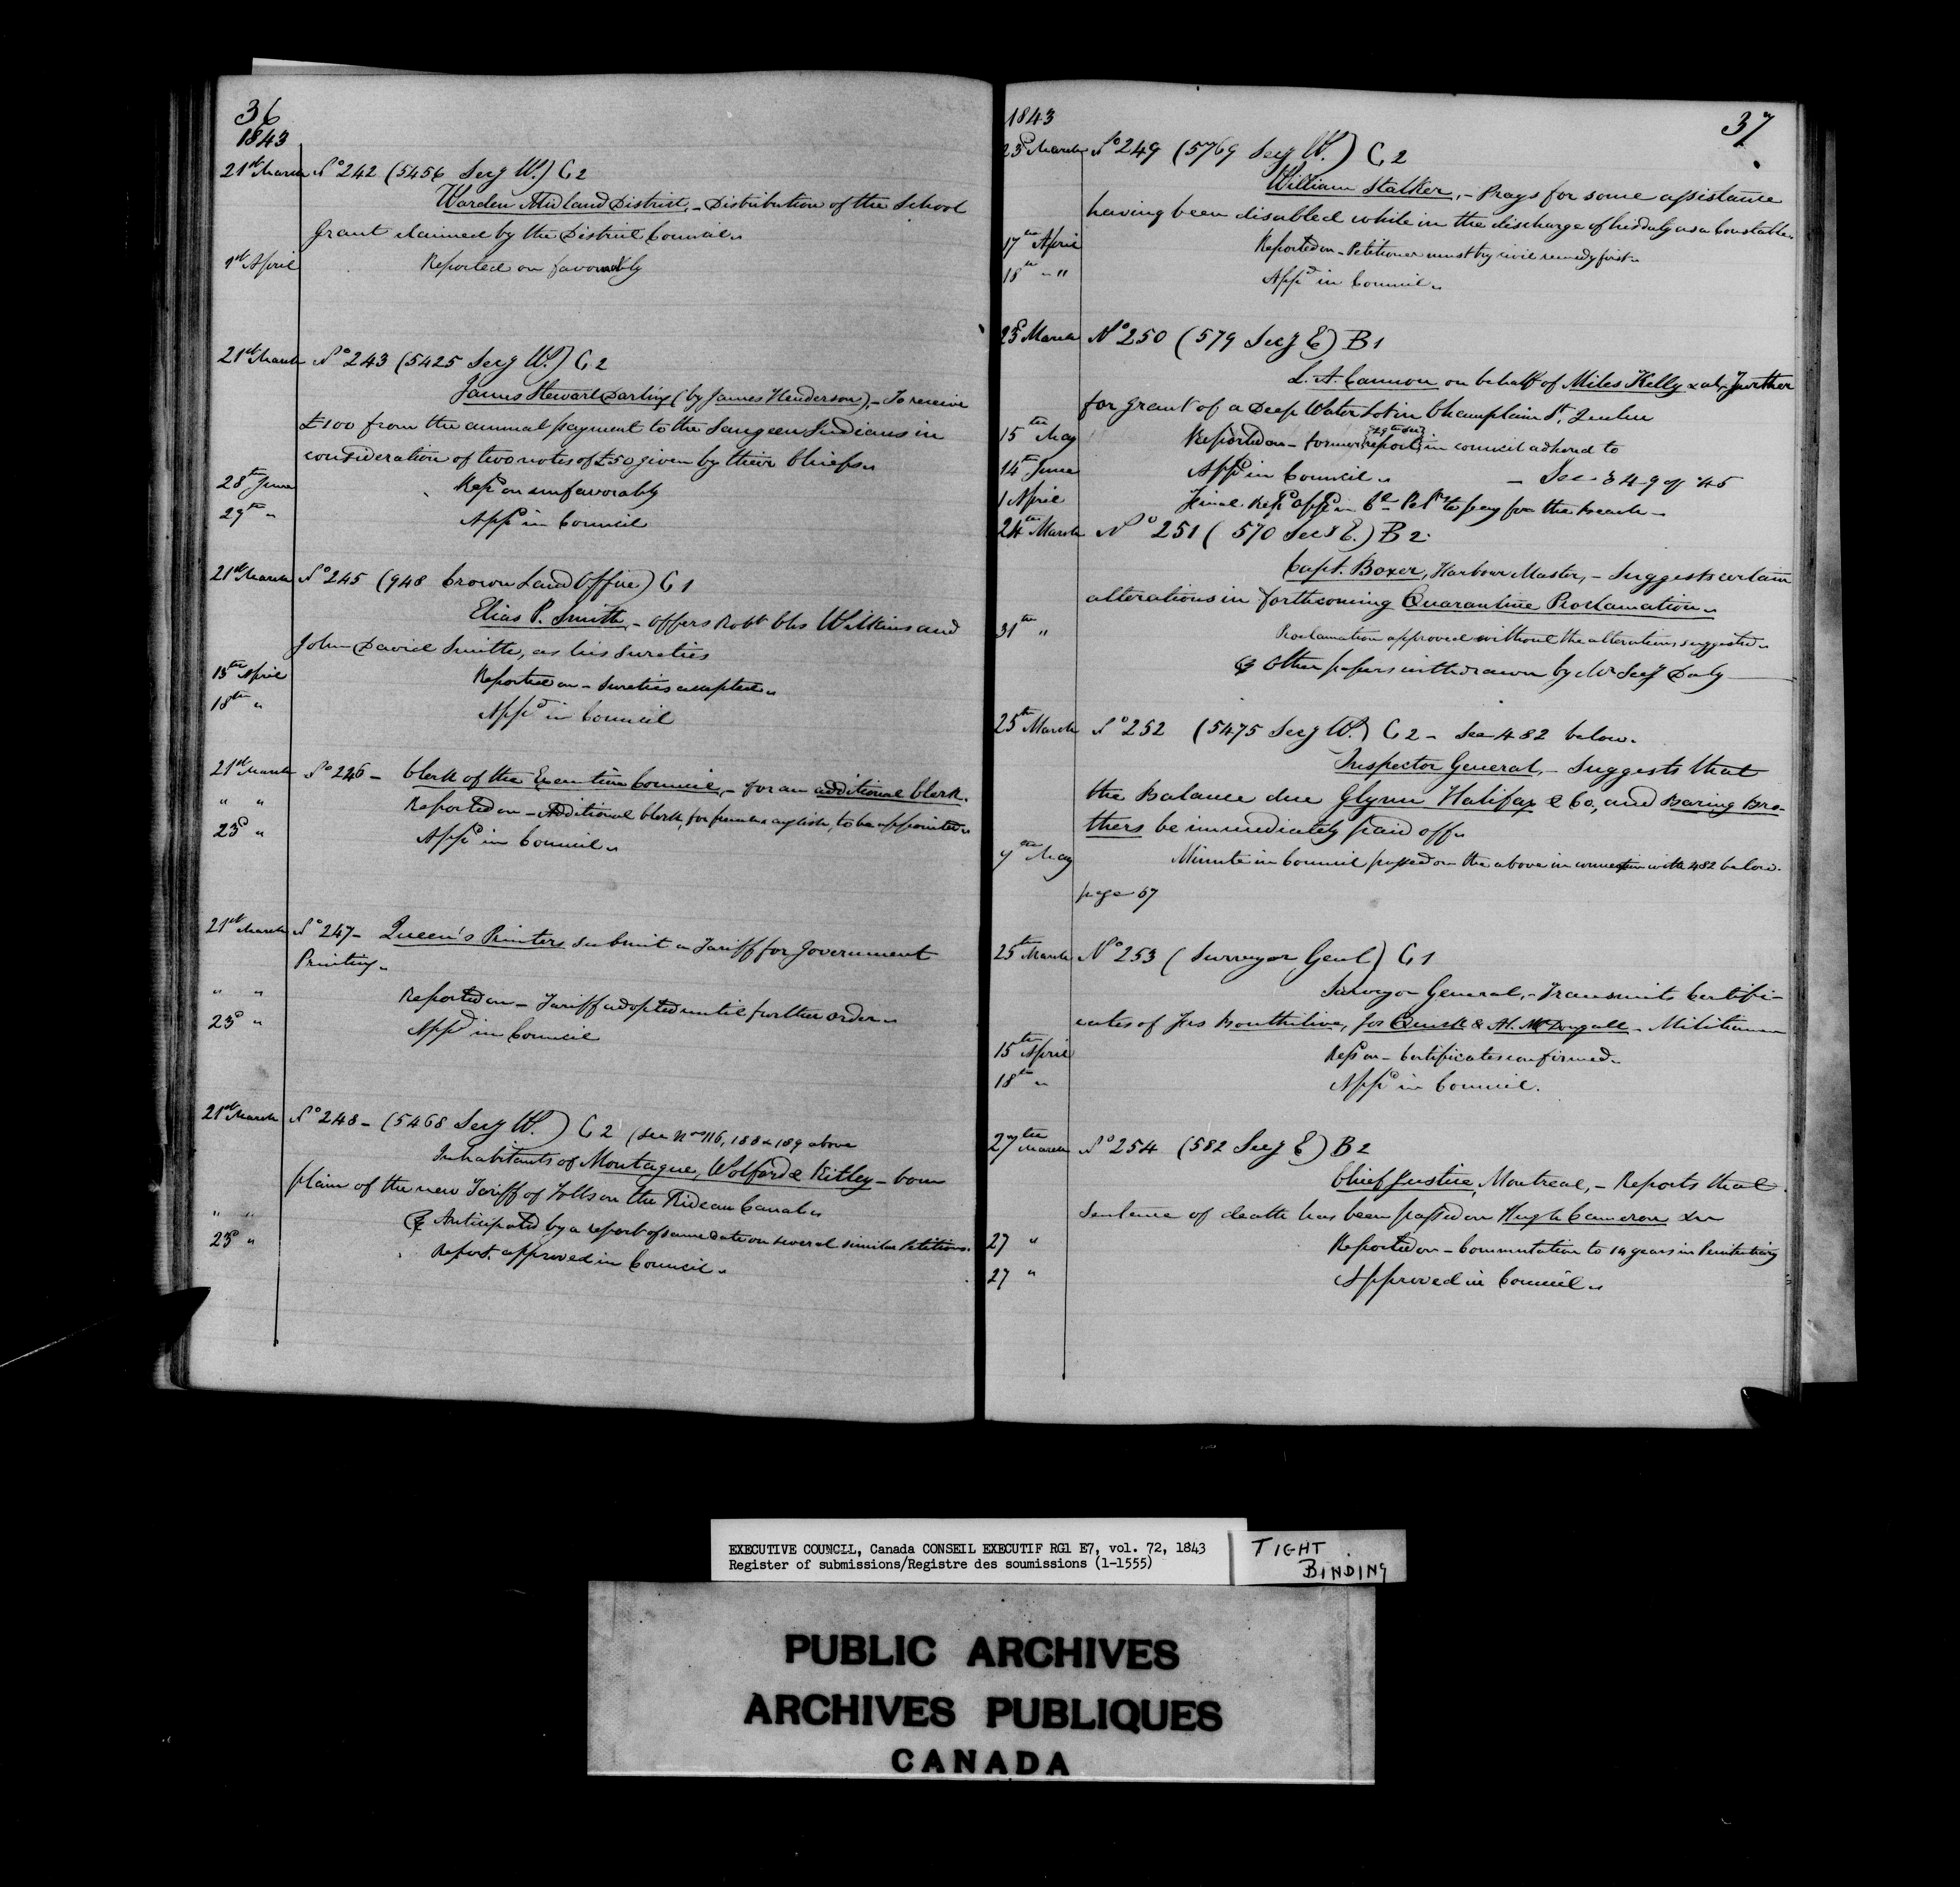 36
1843
21st March No 242 (5456 Secy W.) C 2
Warden Midland District, – Distribution of the School
Grant claimed by the District Council.
1st April Reported on favorably
21st March No 243 (5425 Secy W.) C 2
James Stewart Darling (by James Henderson), – To receive
£100 from the annual payment to the Saugeen Indians in
consideration of two notes of £50 given by their Chiefs.
28th June Repd on unfavorably
29th " Appd in Council
21st March No 245 (948 Crown Land Office) C 1
Elias P. Smith, – offers Robt Chs Wilkins and
John David Smith, as his Sureties
15th April Reported on – Sureties accepted.
18th " Appd in Council
21st March No 246 – Clerk of the Executive Council, – for an additional Clerk.
" " Reported on – Additional Clerk, for french & english, to be appointed.
23d " Appd in Council.
21st March No 247 – Queen's Printers submit a Tariff for Government
Printing.
" " Reported on – Tariff adopted until further order.
23d " Appd in Council
21st March No 248 – (5468 Secy W.) C 2 (See Nos 116, 188 & 189 above
Inhabitants of Montague, Wolford & Kitley – Com
plain of the new Tariff of Tolls on the Rideau Canal.
" " Anticipated by a report of same date on several similar Petitions.
23d " Report approved in Council.
1843
37
23d March No 249 (5769 Secy W.) C 2
William Stalker, – Prays for some assistance
having been disabled while in the discharge of his duty as a Constable.
17th April Reported on – Petitioner must try civil remedy first.
18th " Appd in Council.
23d March No 250 (579 Secy E) B 1
L. A. Cannon on behalf of Miles Kelly & al, further
for grant of a Deep Water Lot in Champlain St, Quebec
15th May Reported on – former report in council adhered to
14th June Appd in Council. – See 349 of '45
1 April Final Repd appd in Cl Petrs to pay for the Beach –
24th March No 251 (570 Secy E.) B 2
Capt. Boxer, Harbour Master, – Suggests certain
alterations in forthcoming Quarantine Proclamation.
31st " Proclamation approved without the alterations suggested.
Other papers withdrawn by Mr Secy Daly
25th March No 252 (5475 Secy W.) C 2 – See 482 below.
Inspector General, – Suggests that
the Balance due Glynn Halifax & Co, and Baring Bro-
thers be immediately paid off.
May Minute in Council passed on the above in connection with 482 below.
page 67
25th March No 253 (Surveyor Genl) C 1
Surveyor General, – Transmits Certifi-
cates of Jos Quirk & Al. McDougall – Militiamen
15th April Repd on – Certificates confirmed.
18th " Appd in Council.
27th March No 254 (582 Secy E) B 2
Chief Justice, Montreal, – Reports that
Sentence of death has been passed on Hugh Cameron
27 " Reported on – Commutation to 14 years in Penitentiary
27 " Approved in Council.
EXECUTIVE COUNCIL, Canada CONSEIL EXECUTIF RG1 E7, vol. 72, 1843
Register of submissions/Registre des soumissions (1-1555)
TIGHT
BINDING
PUBLIC ARCHIVES
ARCHIVES PUBLIQUES
CANADA